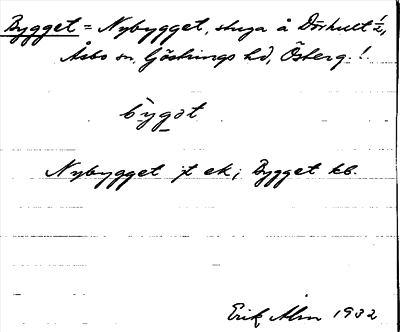 Bygget = Nybygget, stuga å Dörhult 1/2,
Åsbo sn, Göstrings hd, Österg. l.
bygət
Nybygget jt ek; Bygget kb.
Erik Alm 1932